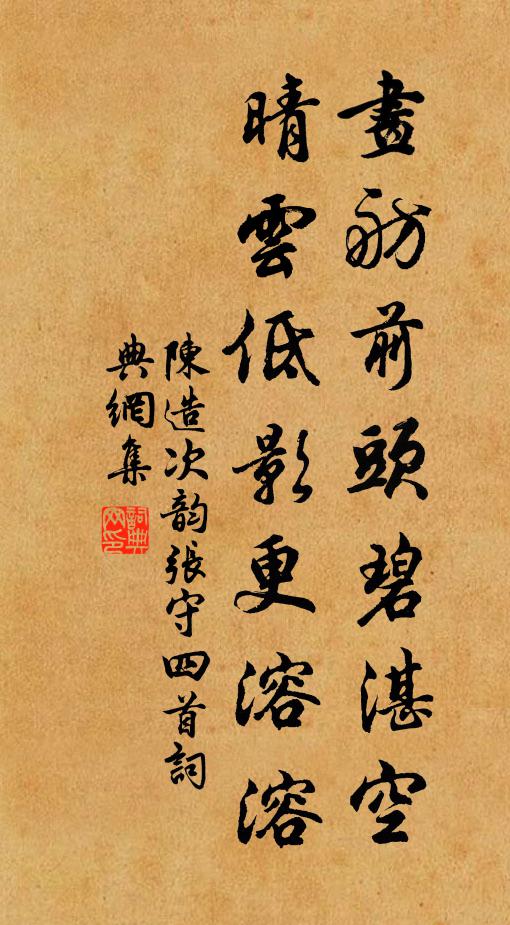 畫舫前頭碧湛空
晴雲低影更溶溶
陳造次韵張守四首詞
典網集
詞典網印